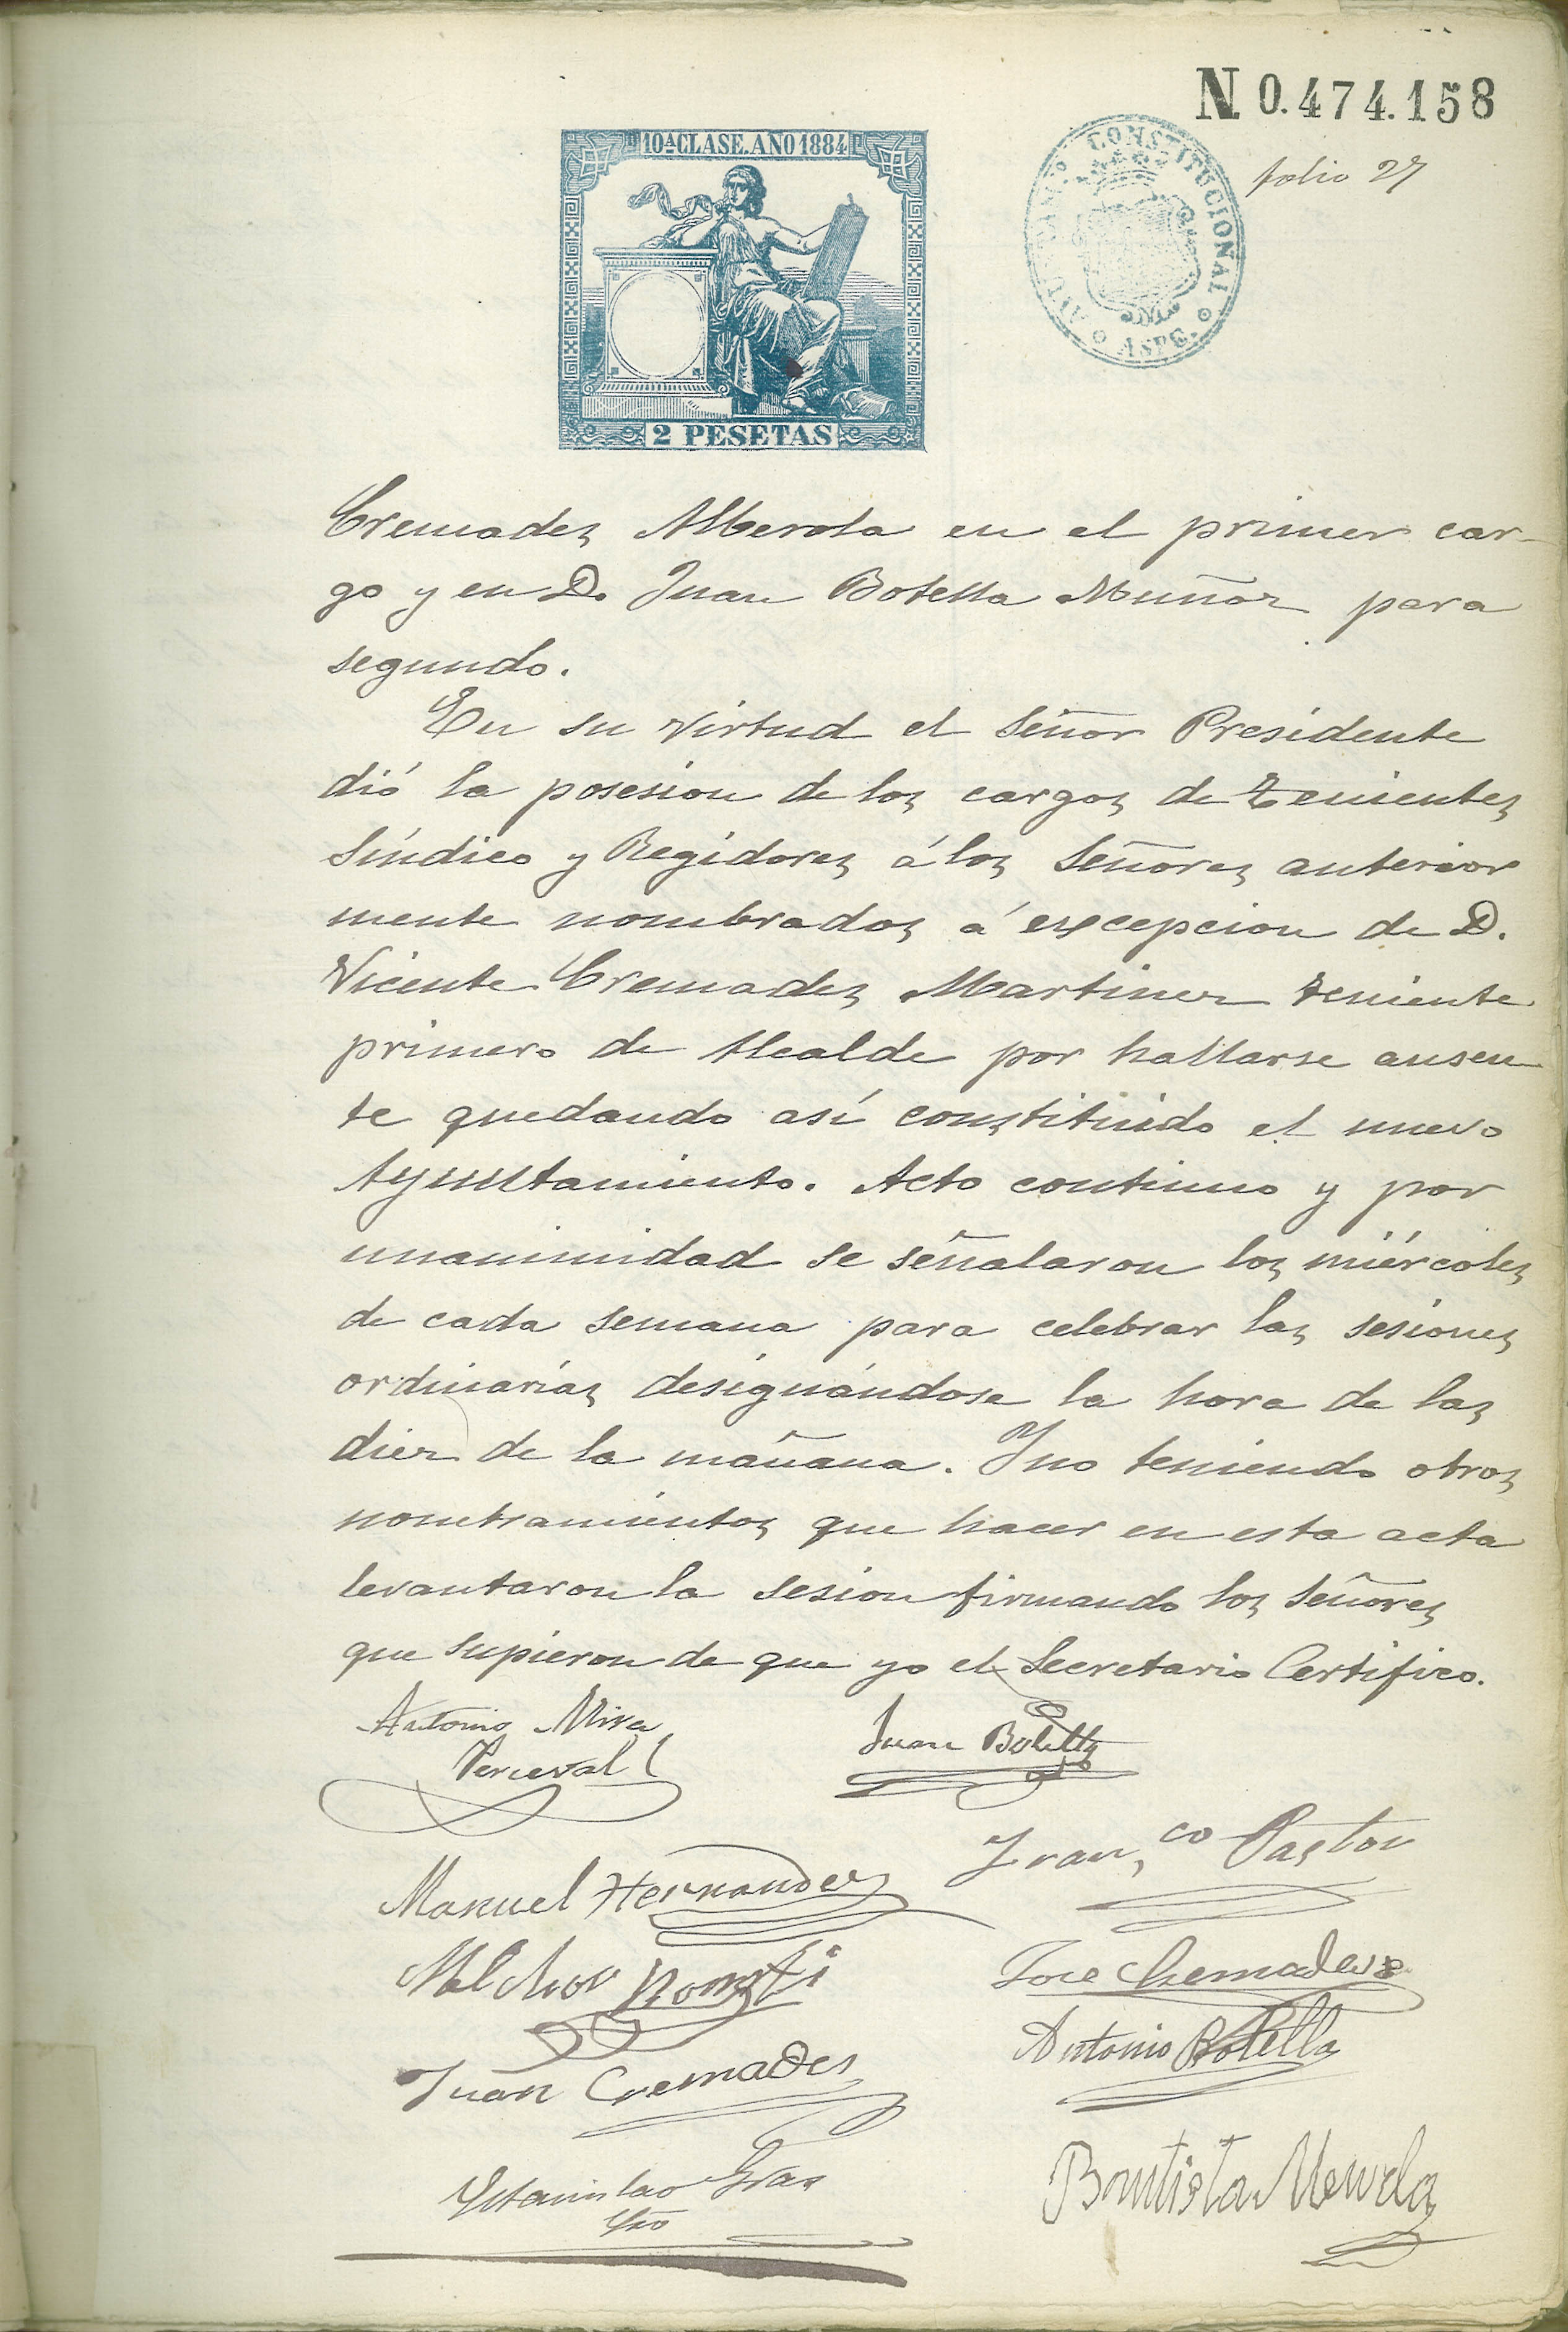 N. 0.474.158
folio 27
10ª CLASE. AÑO 1884
CONSTITUCIONAL
ASPE
2 PESETAS
Cremades Alberola en el primer car-
go y en D. Juan Botella Muñoz para
segundo.
En su virtud el Señor Presidente
dió la posesion de los cargos de Tenientes
Síndico y Regidores á los Señores anterior
mente nombrados á excepcion de D.
Vicente Cremades Martinez teniente
primero de Alcalde por hallarse ausen-
te quedando así constituido el nuevo
Ayuntamiento. Acto continuo y por
unanimidad se señalaron los miércoles
de cada semana para celebrar las sesiones
ordinarias designándose la hora de las
diez de la mañana. Y no teniendo otros
nombramientos que hacer en esta acta
levantaron la sesion firmando los Señores
que supieron de que yo el Secretario Certifico.
Antonio Mira
Perceval
Juan Botella
Fran.co Pastor
Manuel Hernandez
Melchor
Jose Cremades
Antonio Botella
Juan Cremades
Estanislao Gras
Srio
Bautista